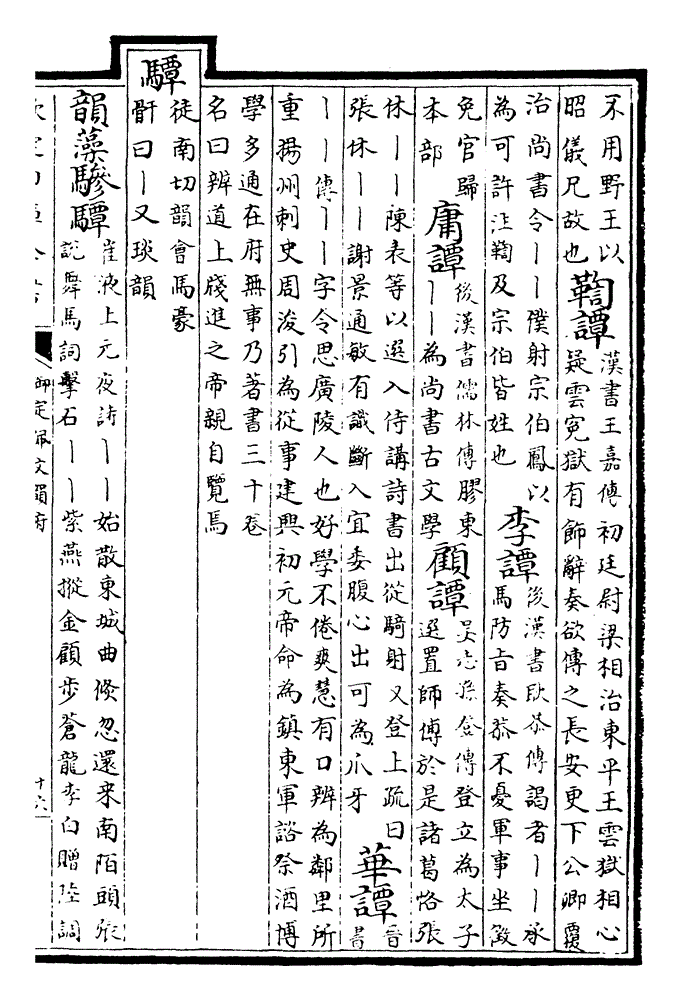 不用野王以
昭儀兄故也
鞫譚
漢書王嘉傳初廷尉梁相治東平王雲獄相心
疑雲寃獄有飾辭奏欲傳之長安更下公卿覆
治尚書令丨丨僕射宗伯鳳以
為可許注鞫及宗伯皆姓也
李譚
後漢書耿恭傳謁者丨丨承
馬防旨奏恭不憂軍事坐徵
免官歸
本部
庸譚
後漢書儒林傳膠東
丨丨為尚書古文學
顧譚
吳志孫登傳登立為太子
選置師傅於是諸葛恪張
休丨丨陳表等以選入侍講詩書出從騎射又登上疏曰
張休丨丨謝景通敏有識斷入宜委腹心出可為爪牙
華譚
晉
書
丨丨傳丨丨字令思廣陵人也好學不倦爽慧有口辨為鄰里所
重揚州刺史周浚引為從事建興初元帝命為鎮東軍諮祭酒博
學多通在府無事乃著書三十卷
名曰辨道上牋進之帝親自覽焉
驔
徒南切韻會馬豪
骭曰丨又琰韻
韻藻驂驔
崔液上元夜詩丨丨始散東城曲倏忽還来南陌頭張
說舞馬詞擊石丨丨紫燕摐金顧步蒼龍李白贈陸調
御定佩文韻府
十六